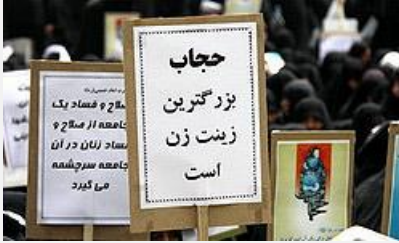 حجاب
بزرگترین
زینت زن
است
صلاح و فساد یک
جامعه از صلاح و
فساد زنان در آن
جامعه سرچشمه
می گیرد